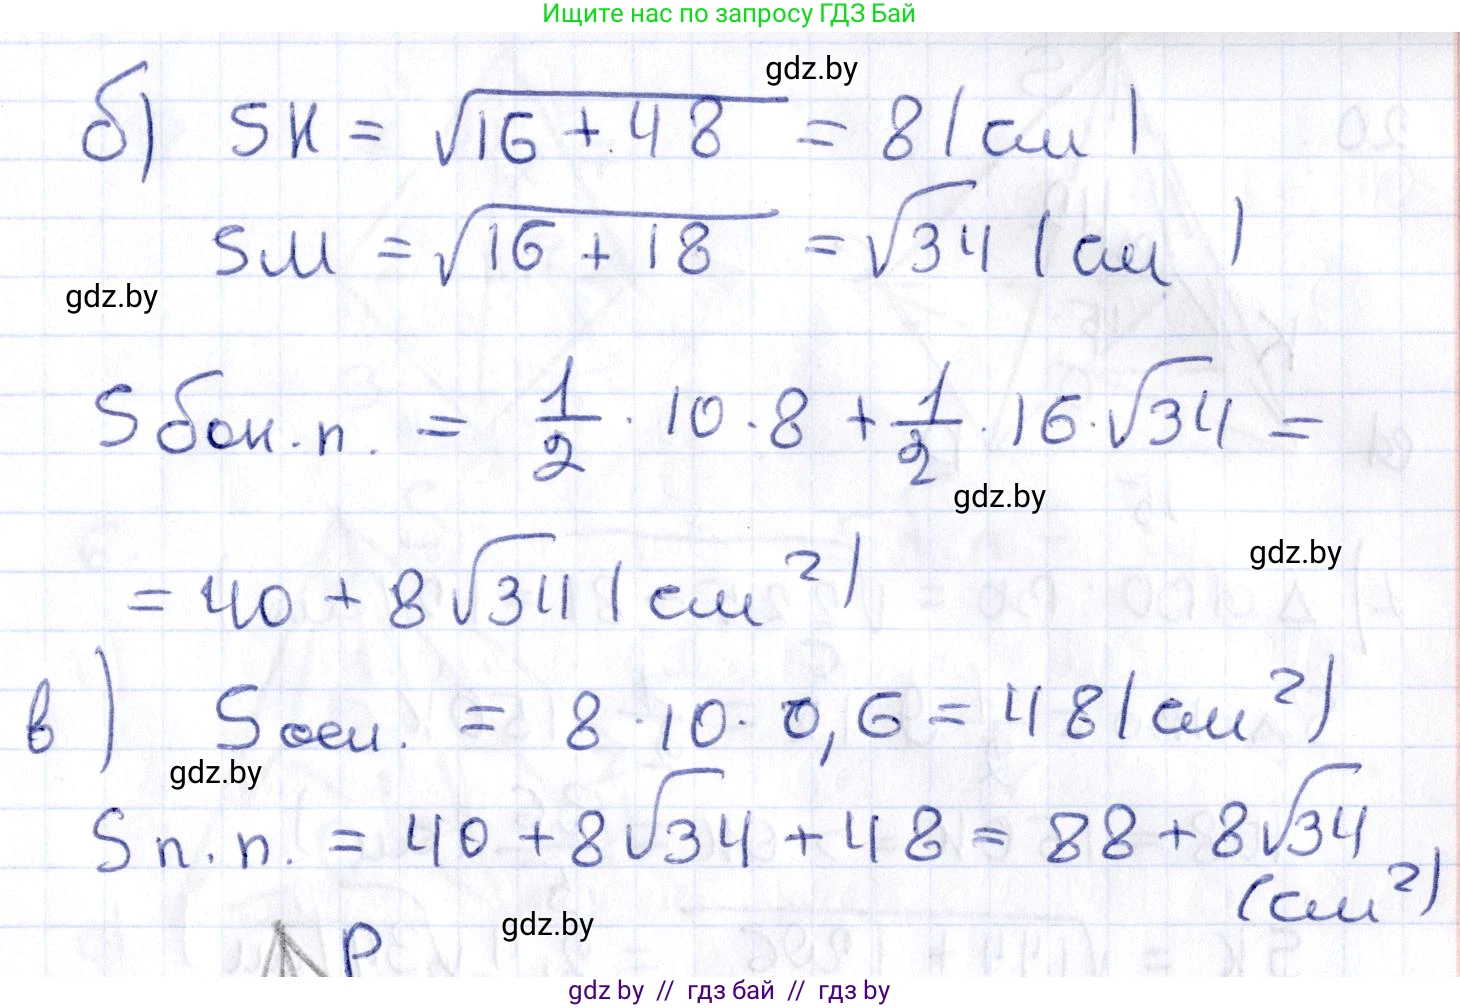 Ищите нас по запросу ГДЗ Бай
gdz.by
б) SK = √16 + 48 = 8 (см)
SM = √16 + 18 = √34 (см)
gdz.by
Sбок.п. = 1/2 · 10 · 8 + 1/2 · 16 · √34 =
gdz.by
gdz.by
= 40 + 8√34 (см²)
в) Sосн. = 8 · 10 · 0,6 = 48 (см²)
gdz.by
Sп.п. = 40 + 8√34 + 48 = 88 + 8√34
(см²)
gdz.by
P
gdz by // гдз бай // гдз by